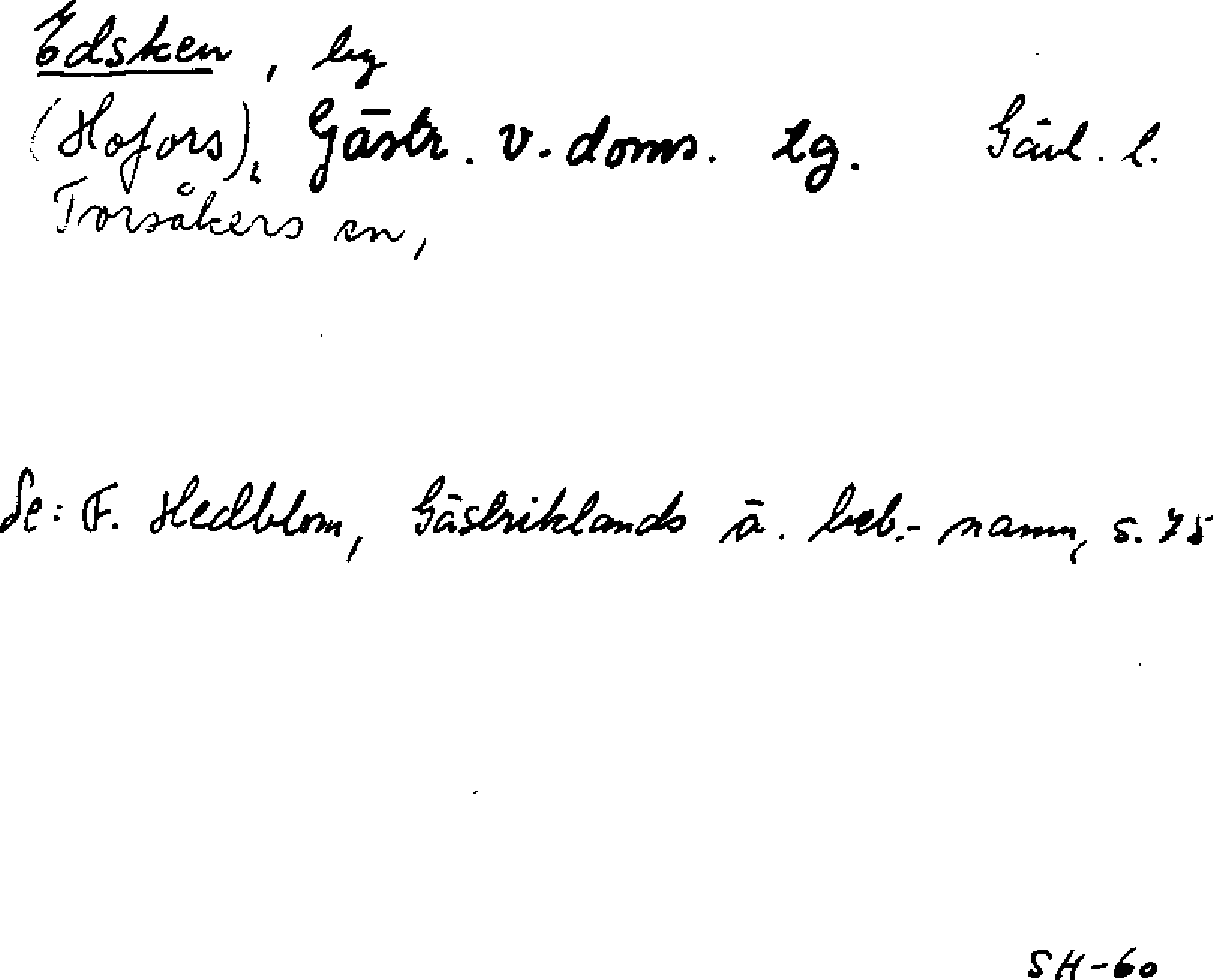 Edsken, by
(Hofors), Gästr. v. doms. tg. Gävl. l.
Torsåkers sn,
Se: F. Hedblom, Gästriklands ä. beb.-namn, s. 75
SH-60